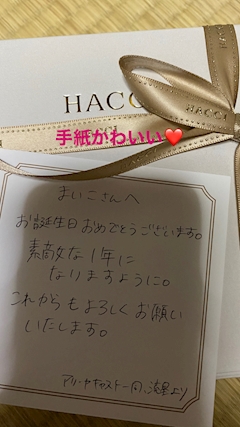 HACCI
HACCI
手紙かわいい❤️
まいこさんへ
お誕生日おめでとうございます。
素敵な1年に
なりますように。
これからもよろしくお願い
いたします。
アリーナキャスト一同、流星より